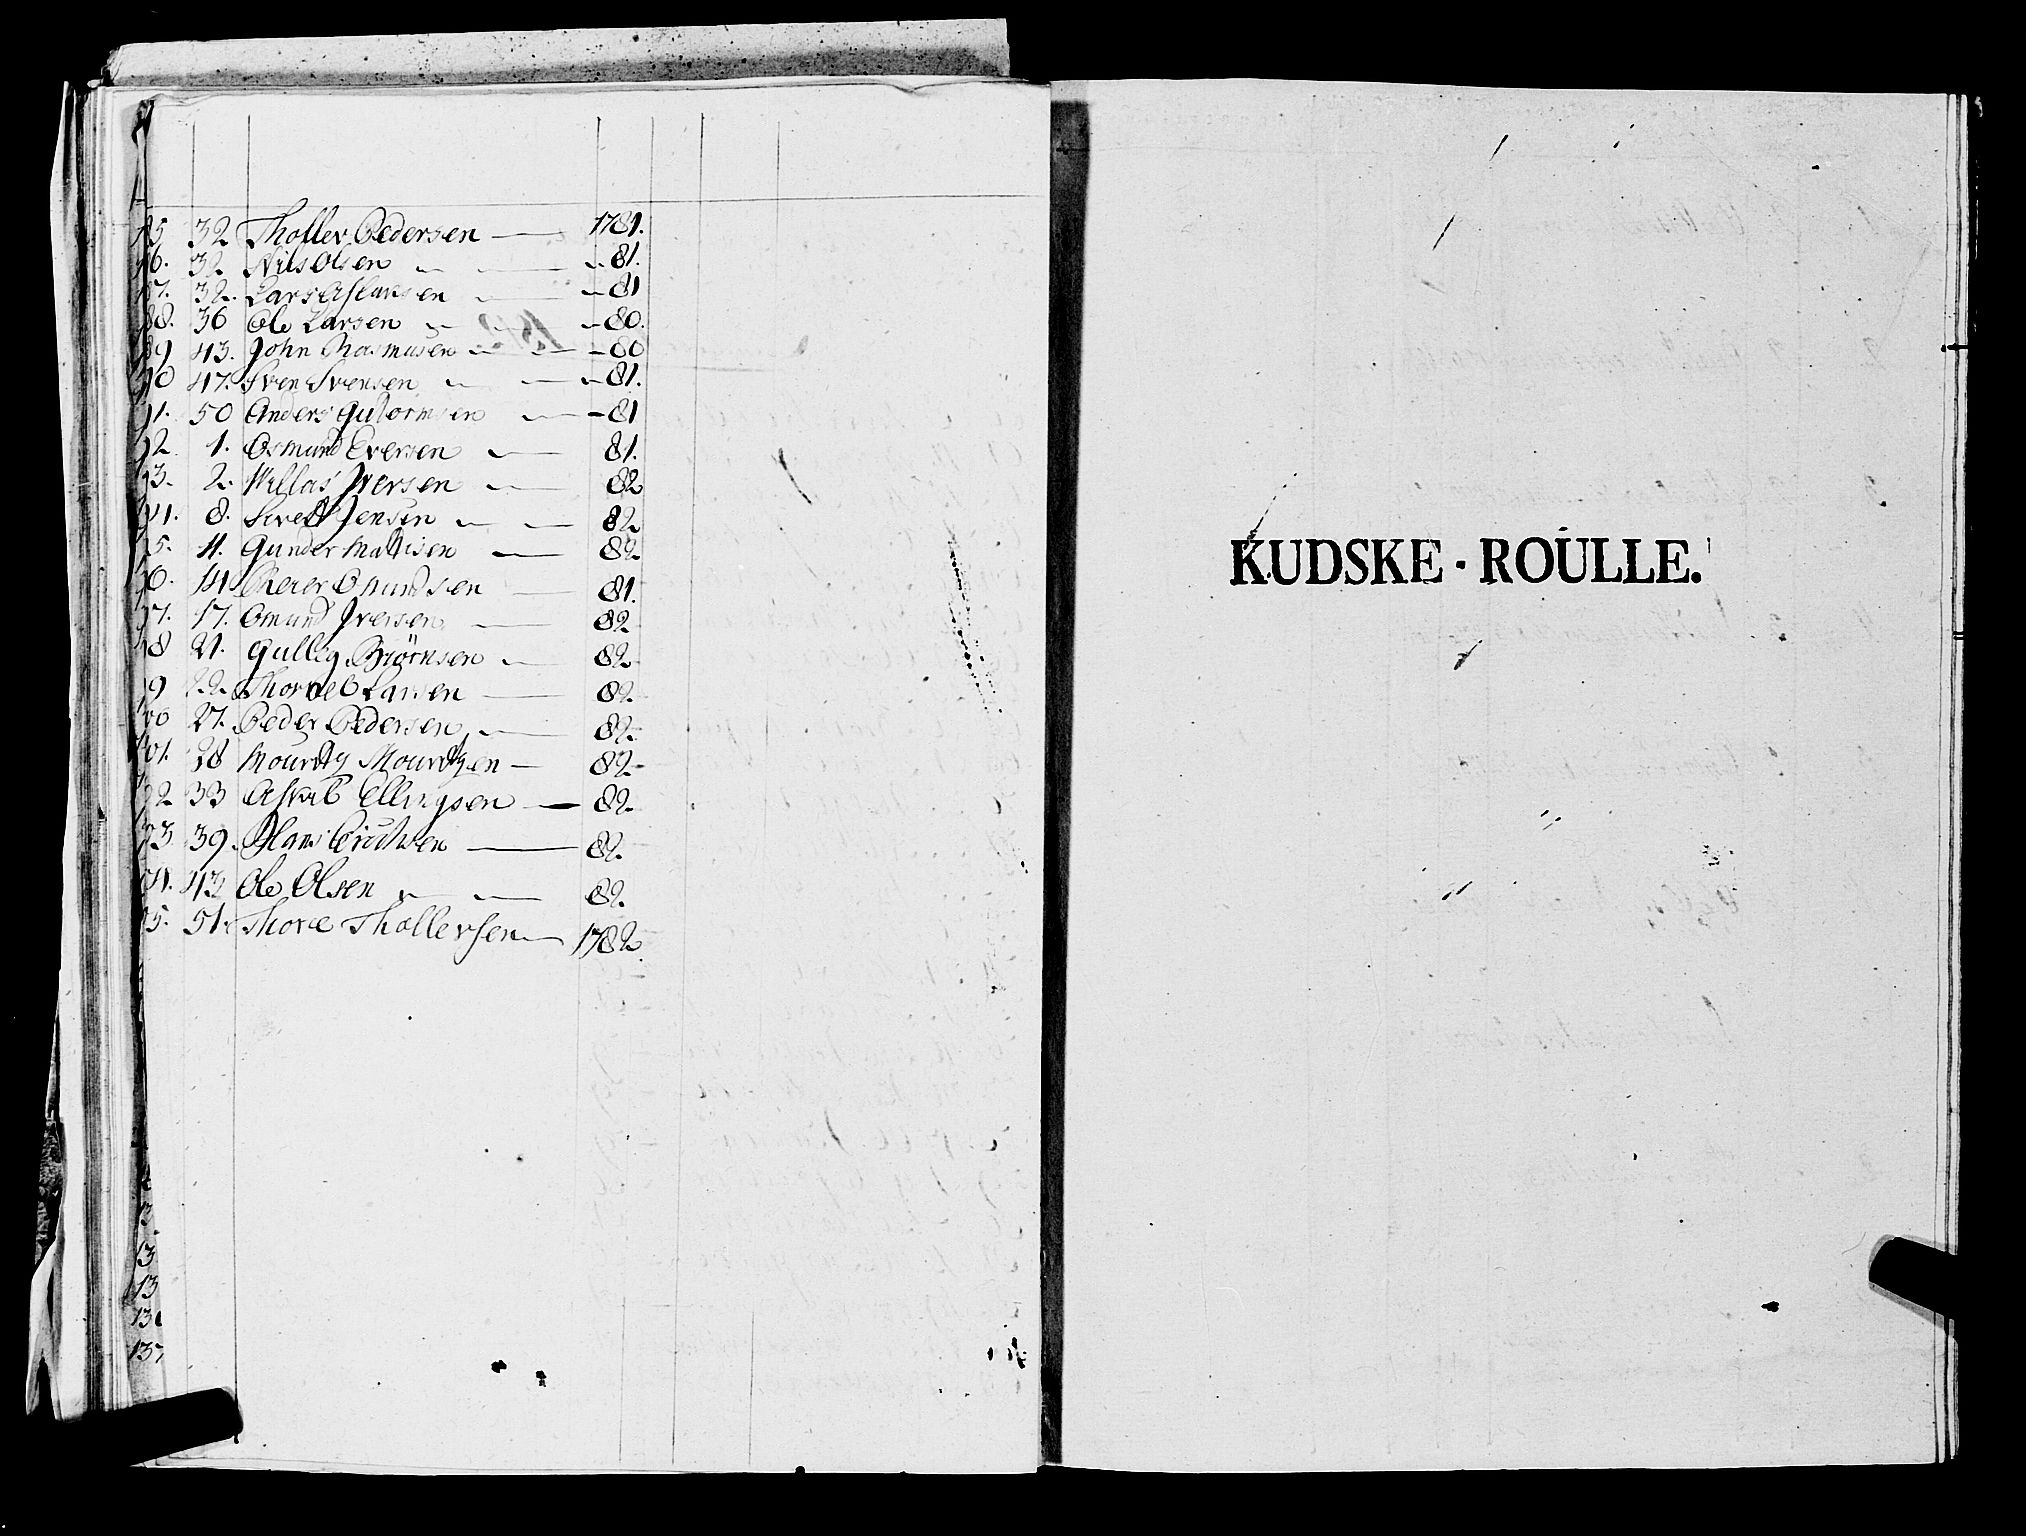 85 32 Thollev Pedersen — 1781.
86. 32 Nils Olsen — 81.
87. 32. Lars Aslaksen — 81
88. 36 Ole Larsen — 80.
89 43. John Rasmusen — 80
90 47. Sven Svensen — 81.
91. 50 Anders Gutormsen — 81
92. 1. Osmund Eversen — 81.
93. 2. Iversen — 82
94. 8. Sivert Jensen — 82
95. 11. Gunder Mattisen — 82
96. 14 Reier Omundsen — 81.
97. 17. Omund Iversen — 82
98 21. Gulleg Biørnsen — 82
99 22. Larsen — 82
100 27. Peder Pedersen — 82
101. 28 Mouritz Mouritzen — 82
102 33 Ellingsen — 82
103 39. Hans Erichsen — 82.
104. 43 Ole Olsen — 82.
105. 51. Thore Thollevsen — 1782
13
13
13
137
KUDSKE - ROULLE.